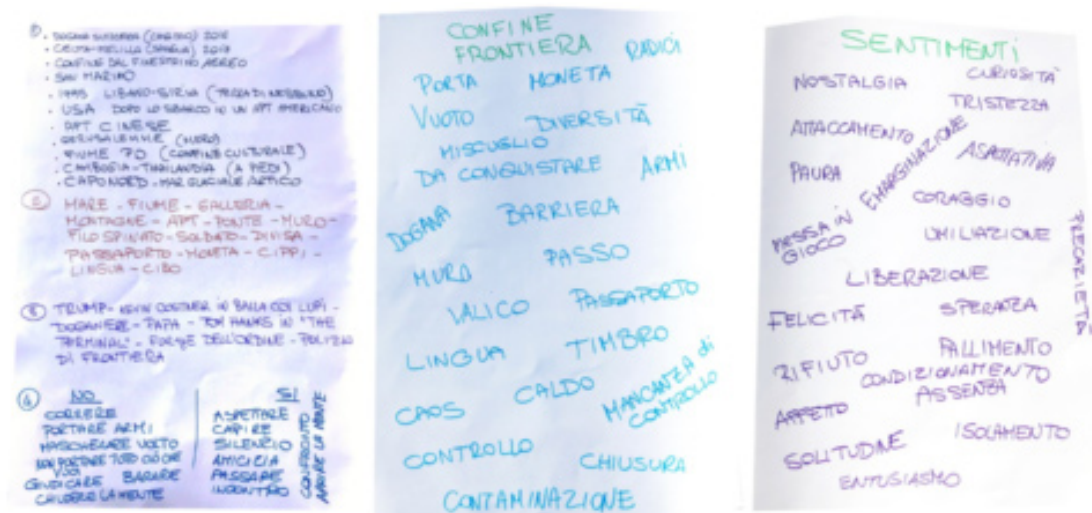 DOGANA SVIZZERA (CHIASSO) 2018
CEUTA-MELILLA (SPAGNA) 2017
CONFINE DAL FINESTRINO AEREO
SAN MARINO
1995 LIBANO-SIRIA (TERRA DI NESSUNO)
USA DOPO LO SBARCO IN UN APT AMERICANO
APT CINESE
GERUSALEMME (MURO)
FIUME PO (CONFINE CULTURALE)
CAMBOGIA-THAILANDIA (A PIEDI)
CAPO NORD - MAR GLACIALE ARTICO
MARE - FIUME - GALLERIA -
MONTAGNE - APT - PONTE - MURO -
FILO SPINATO - SOLDATO - DIVISA -
PASSAPORTO - MONETA - CIPPI -
LINGUA - CIBO
TRUMP - KEVIN COSTNER IN BALLA COI LUPI -
DOGANIERE - PAPA - TOM HANKS IN "THE
TERMINAL" - FORZE DELL'ORDINE - POLIZIA
DI FRONTIERA
NO SI
CORRERE ASPETTARE
PORTARE ARMI CAPIRE
MASCHERARE VOLTO SILENZIO
NON PORTARE TUTO CIÒ CHE AMICIZIA
VUOI
GIUDICARE BARARE PASSARE
CHIUDERE LA MENTE INCONTRO
CONFRONTO
APRIRE LA MENTE
CONFINE
FRONTIERA RADICI
PORTA MONETA
VUOTO DIVERSITÀ
MISCUGLIO
DA CONQUISTARE ARMI
DOGANA BARRIERA
MURO PASSO
VALICO PASSAPORTO
LINGUA TIMBRO
CAOS CALDO MANCANZA di
CONTROLLO
CONTROLLO CHIUSURA
CONTAMINAZIONE
SENTIMENTI
NOSTALGIA CURIOSITÀ
TRISTEZZA
ATTACCAMENTO EMARGINAZIONE
PAURA ASPETTATIVA
CORAGGIO
MESSA IN
GIOCO UMILIAZIONE
LIBERAZIONE
FELICITÀ SPERANZA
RIFIUTO FALLIMENTO
CONDIZIONAMENTO
AFFETTO ASSENZA
SOLITUDINE ISOLAMENTO
ENTUSIASMO